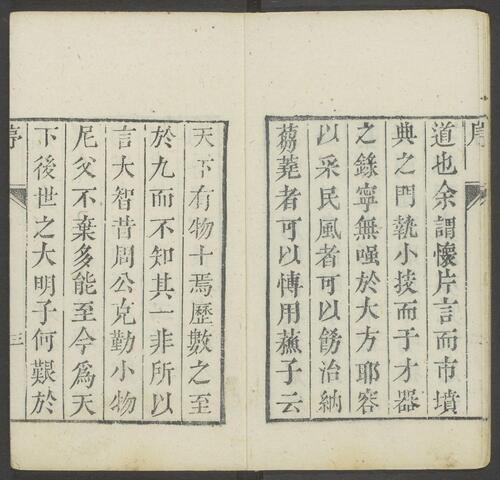 序
道也余謂懷片言而市墳
典之門執小技而于才器
之錄寧無嗤於大方耶容
以采民風者可以餝治納
蒭蕘者可以慱用蕪子云
天下有物十焉歷數之至
於九而不知其一非所以
言大智昔周公克勤小物
尼父不棄多能至今爲天
下後世之大明子何艱於
三